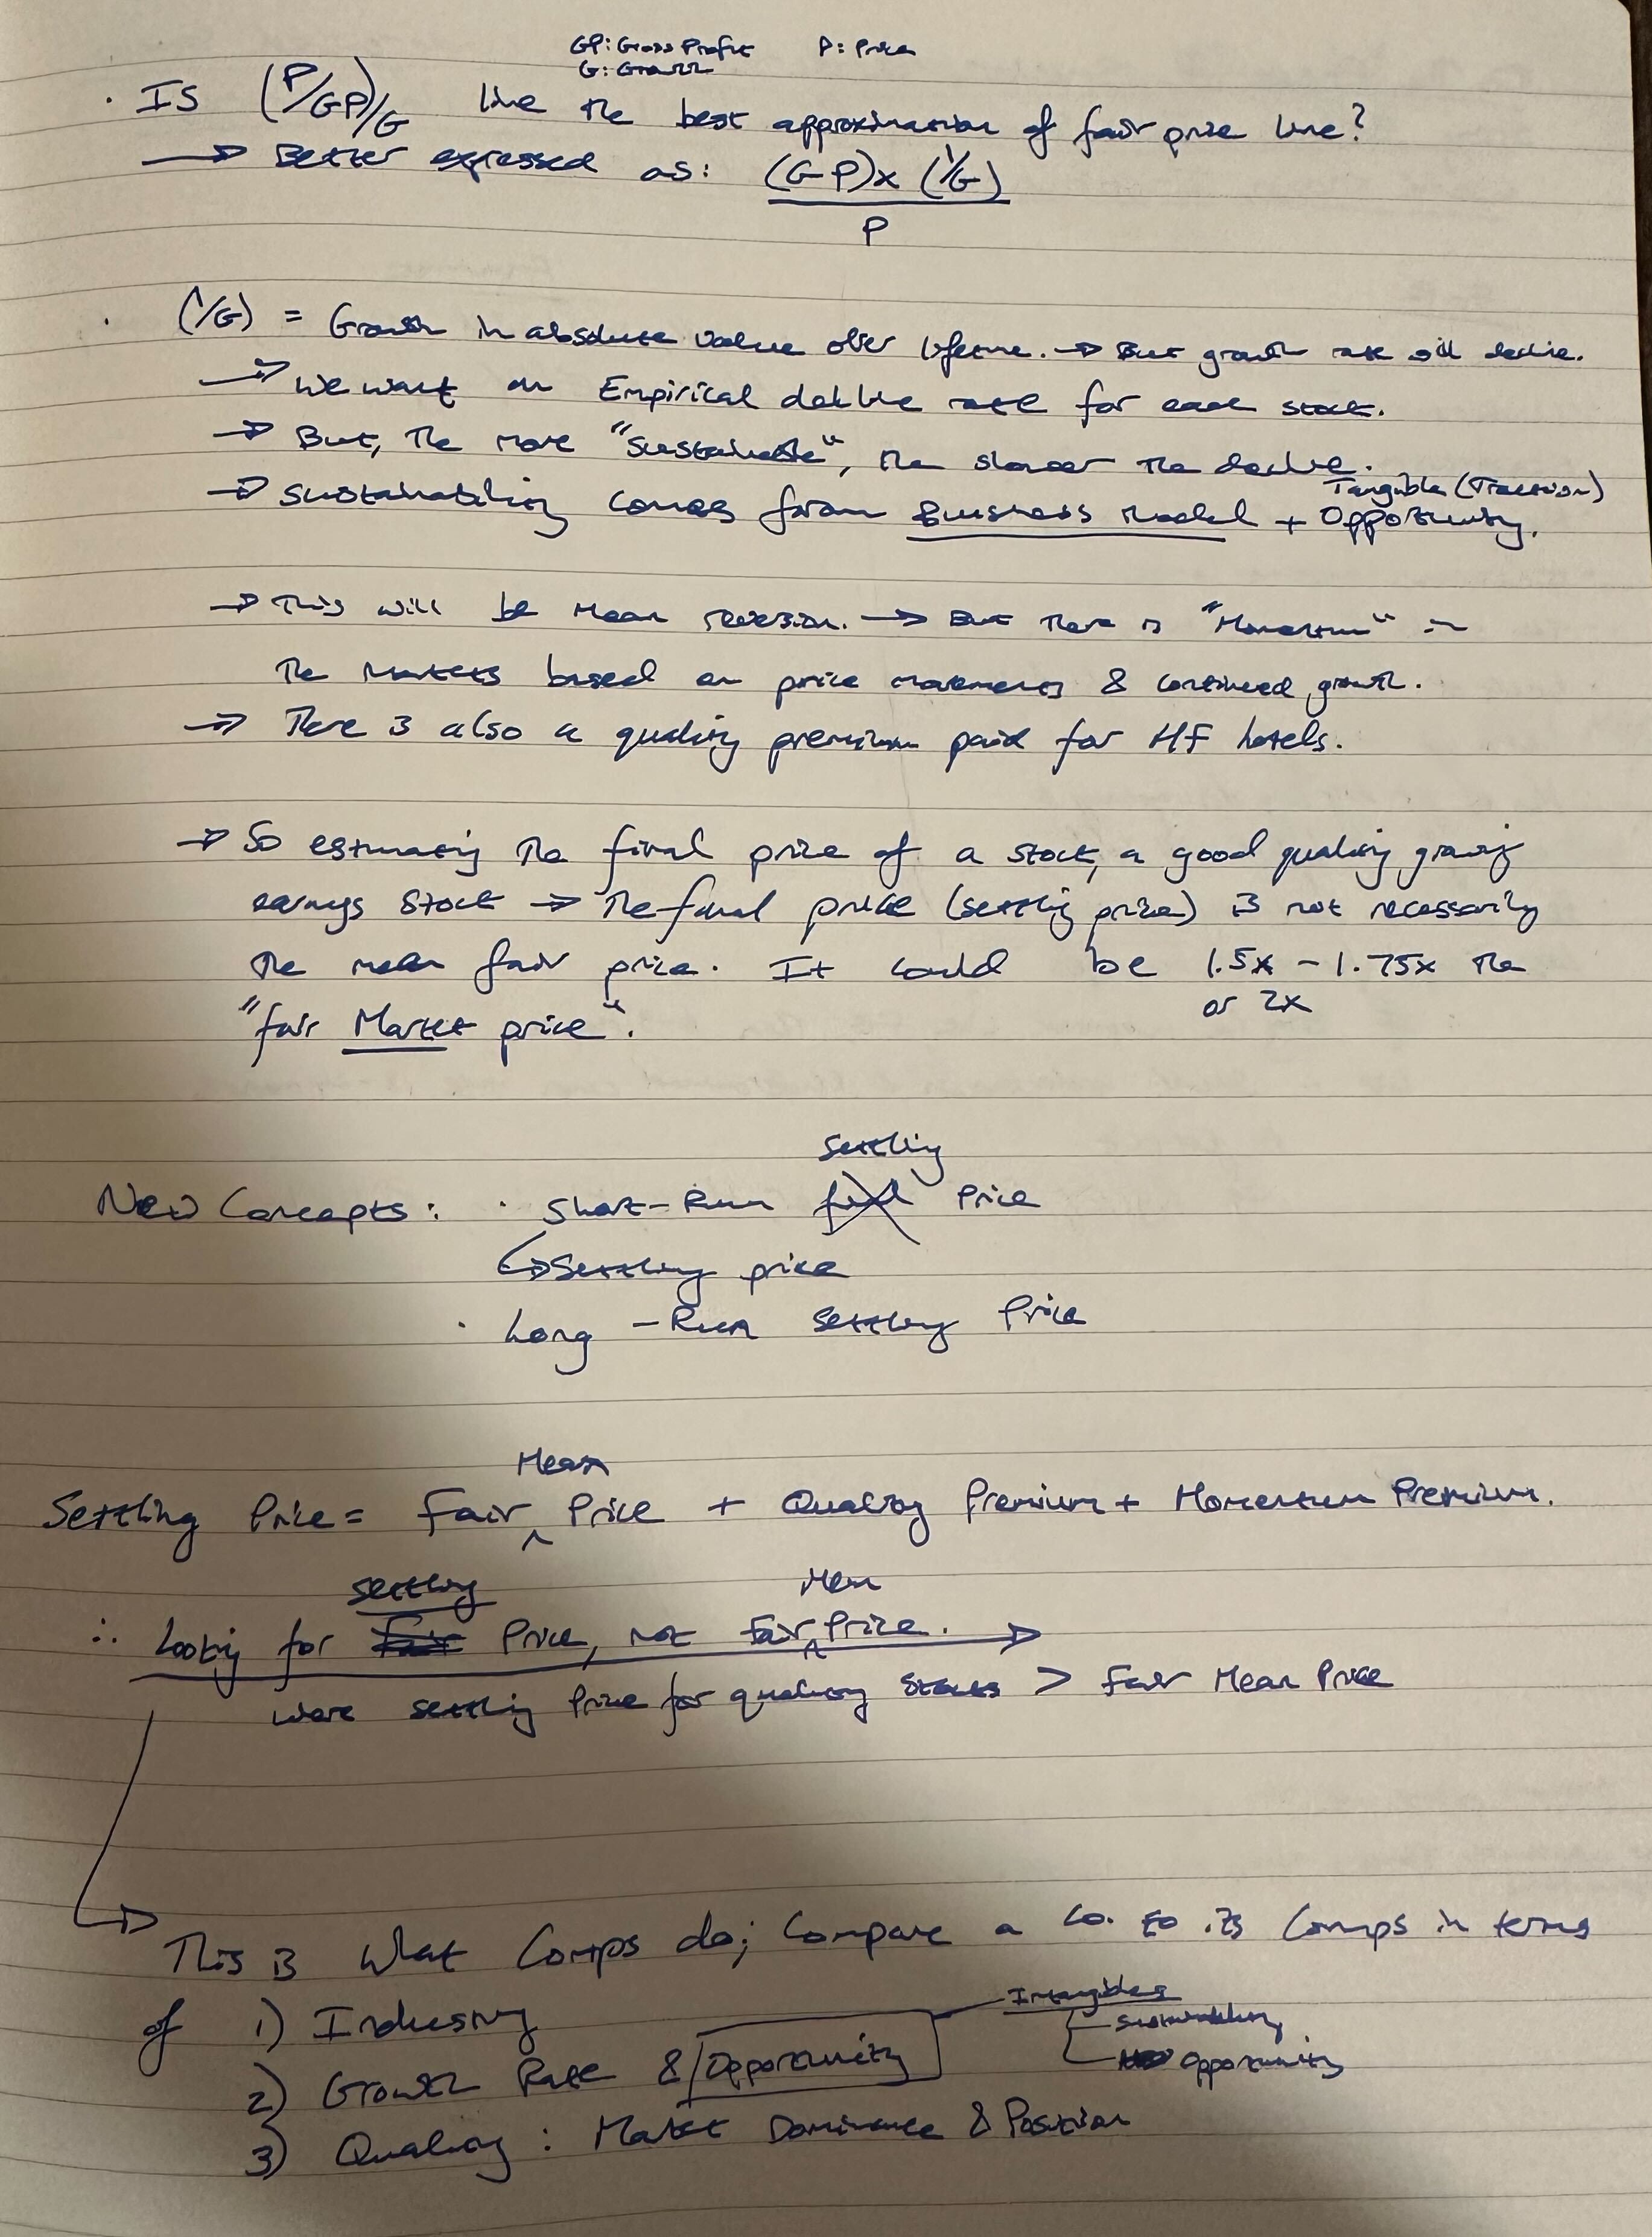 GP: Gross Profit P: Price
G: Growth
· Is (P/GP)/G line the best approximation of fair price line?
→ Better expressed as: (GP)x (1/G)
P
· (1/G) = Growth in absolute value over lifetime. → But growth rate will decline.
→ We want an Empirical decline rate for each stock.
→ But, the more "sustainable", the slower the decline.
Tangible (Traction)
→ Sustainability comes from Business Model + Opportunity.
→ This will be mean reversion. → But there is "Momentum" in
the markets based on price movements & continued growth.
→ There is also a quality premium paid for HF hotels.
→ So estimating the final price of a stock, a good quality growing
earnings stock → The final price (settling price) is not necessarily
the mean fair price. It could be 1.5x - 1.75x the
or 2x
"fair Market price".
settling
New Concepts: · Short-Run Price
↳ Settling price
· Long-Run Settling Price
Mean
Settling Price = Fair ^ Price + Quality Premium + Momentum Premium.
settling Mean
∴ Looking for Fair Price, not Fair ^ Price. →
were settling Price for quality stocks > Fair Mean Price
→ This is what Comps do; Compare a Co. to its Comps in terms
of 1) Industry
Intangibles
Sustainability
2) Growth Rate & Opportunity
Opportunity
3) Quality: Market Dominance & Position